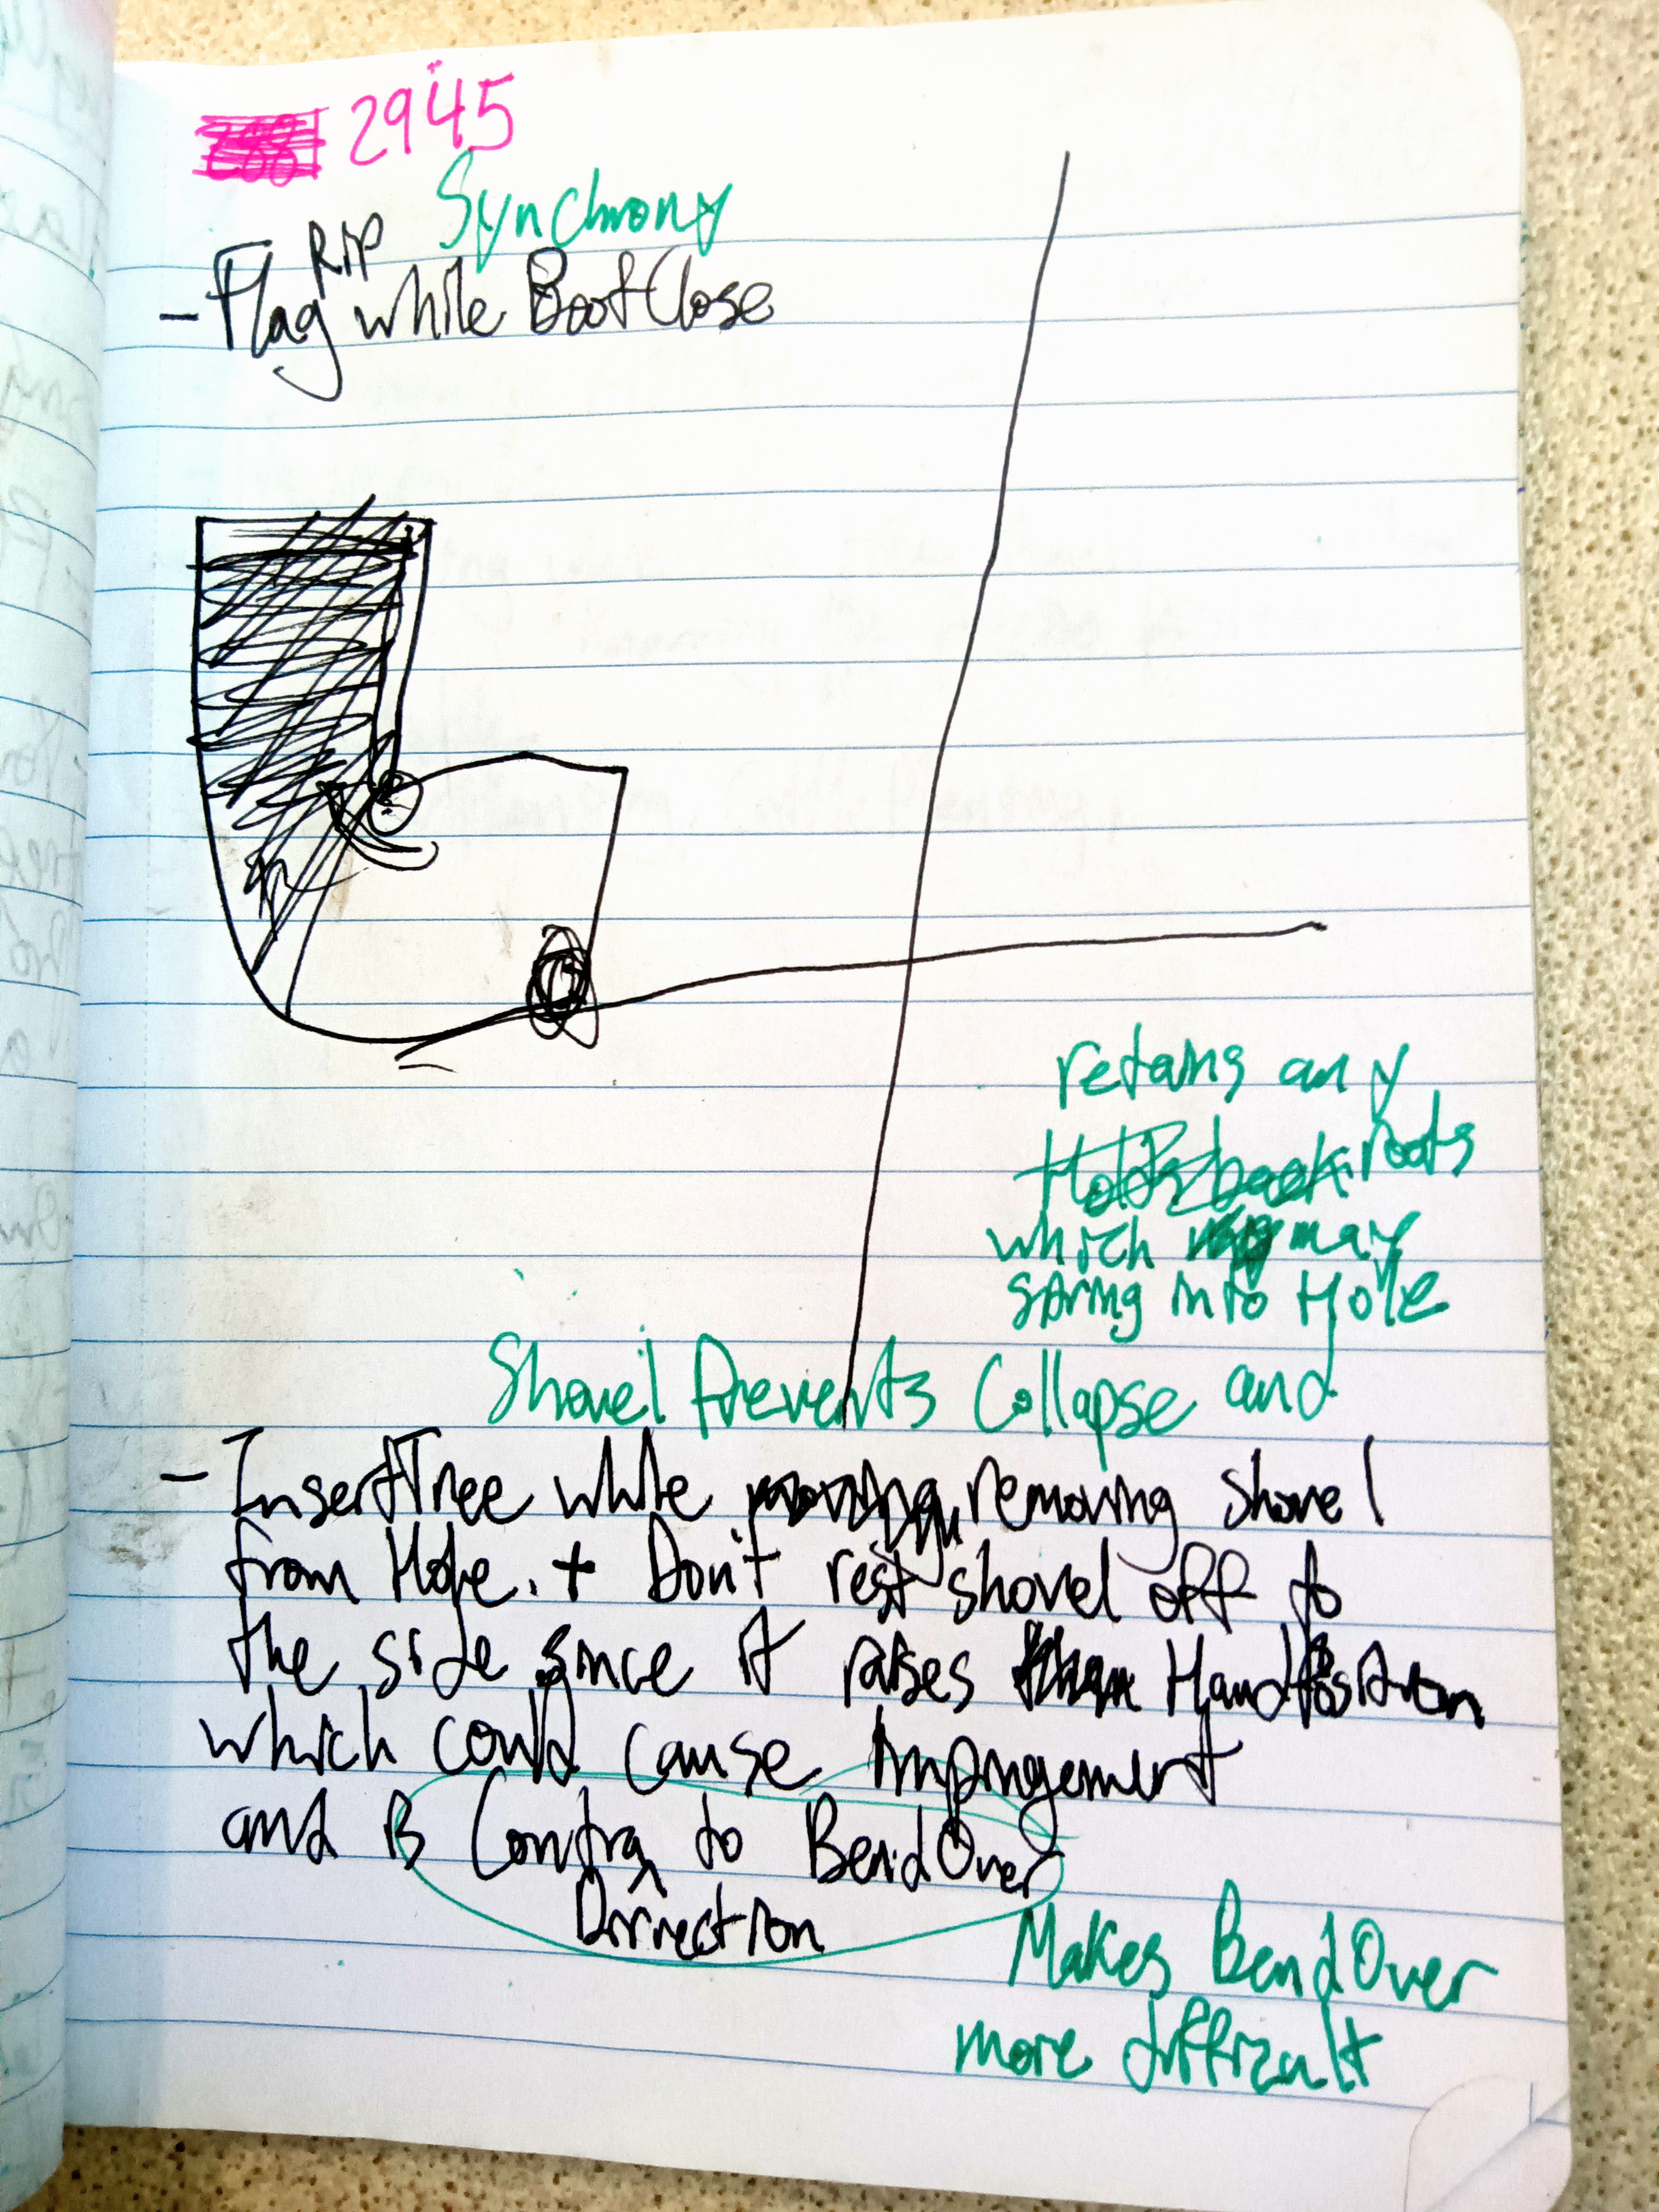 2945
Synchrony
- Flag Rip while Boot Close
retains any
roots
which may
spring into Hole
Shovel Prevents Collapse and
- Insert Tree while removing shovel
from Hole. + Don't rest shovel off to
the side since it raises Hand Position
which could cause Impingement
and is Contra to Bend Over
Dirrection
Makes Bend Over
more difficult